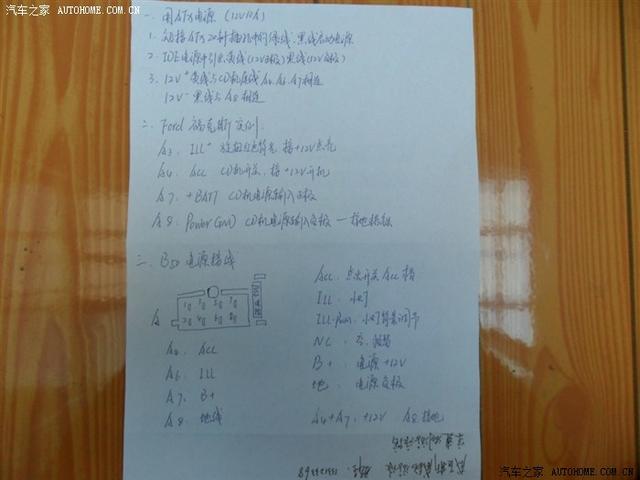 汽车之家 AUTOHOME.COM.CN
一. 用ATX电源 (12V10A)
1. 短接ATX 20针插孔中的绿线.黑线启动电源
2. IDE电源中引出黄线(12V正极)黑线(12V负极)
3. 12V⁺黄线与CD机尾线A4.A6.A7相连
12V⁻黑线与A8相连
二. Ford 福克斯实例
A3. ILL⁺ 接+12V点亮
A4. ACC CD机开关.接+12V开机
A7. +BATT CD机电源输入正极
A8. Power(GND) CD机电源输入负极 — 接地
三. B50电源接线
A
ACC. 点火开关ACC档
ILL. 小灯
小灯背景调节
NC. 空.
B+ 电源+12V
地. 电源负极
ACC
A6. ILL
A7. B+
A8. 地线
A4+A7. +12V A8接地
汽车之家 AUTOHOME.COM.CN